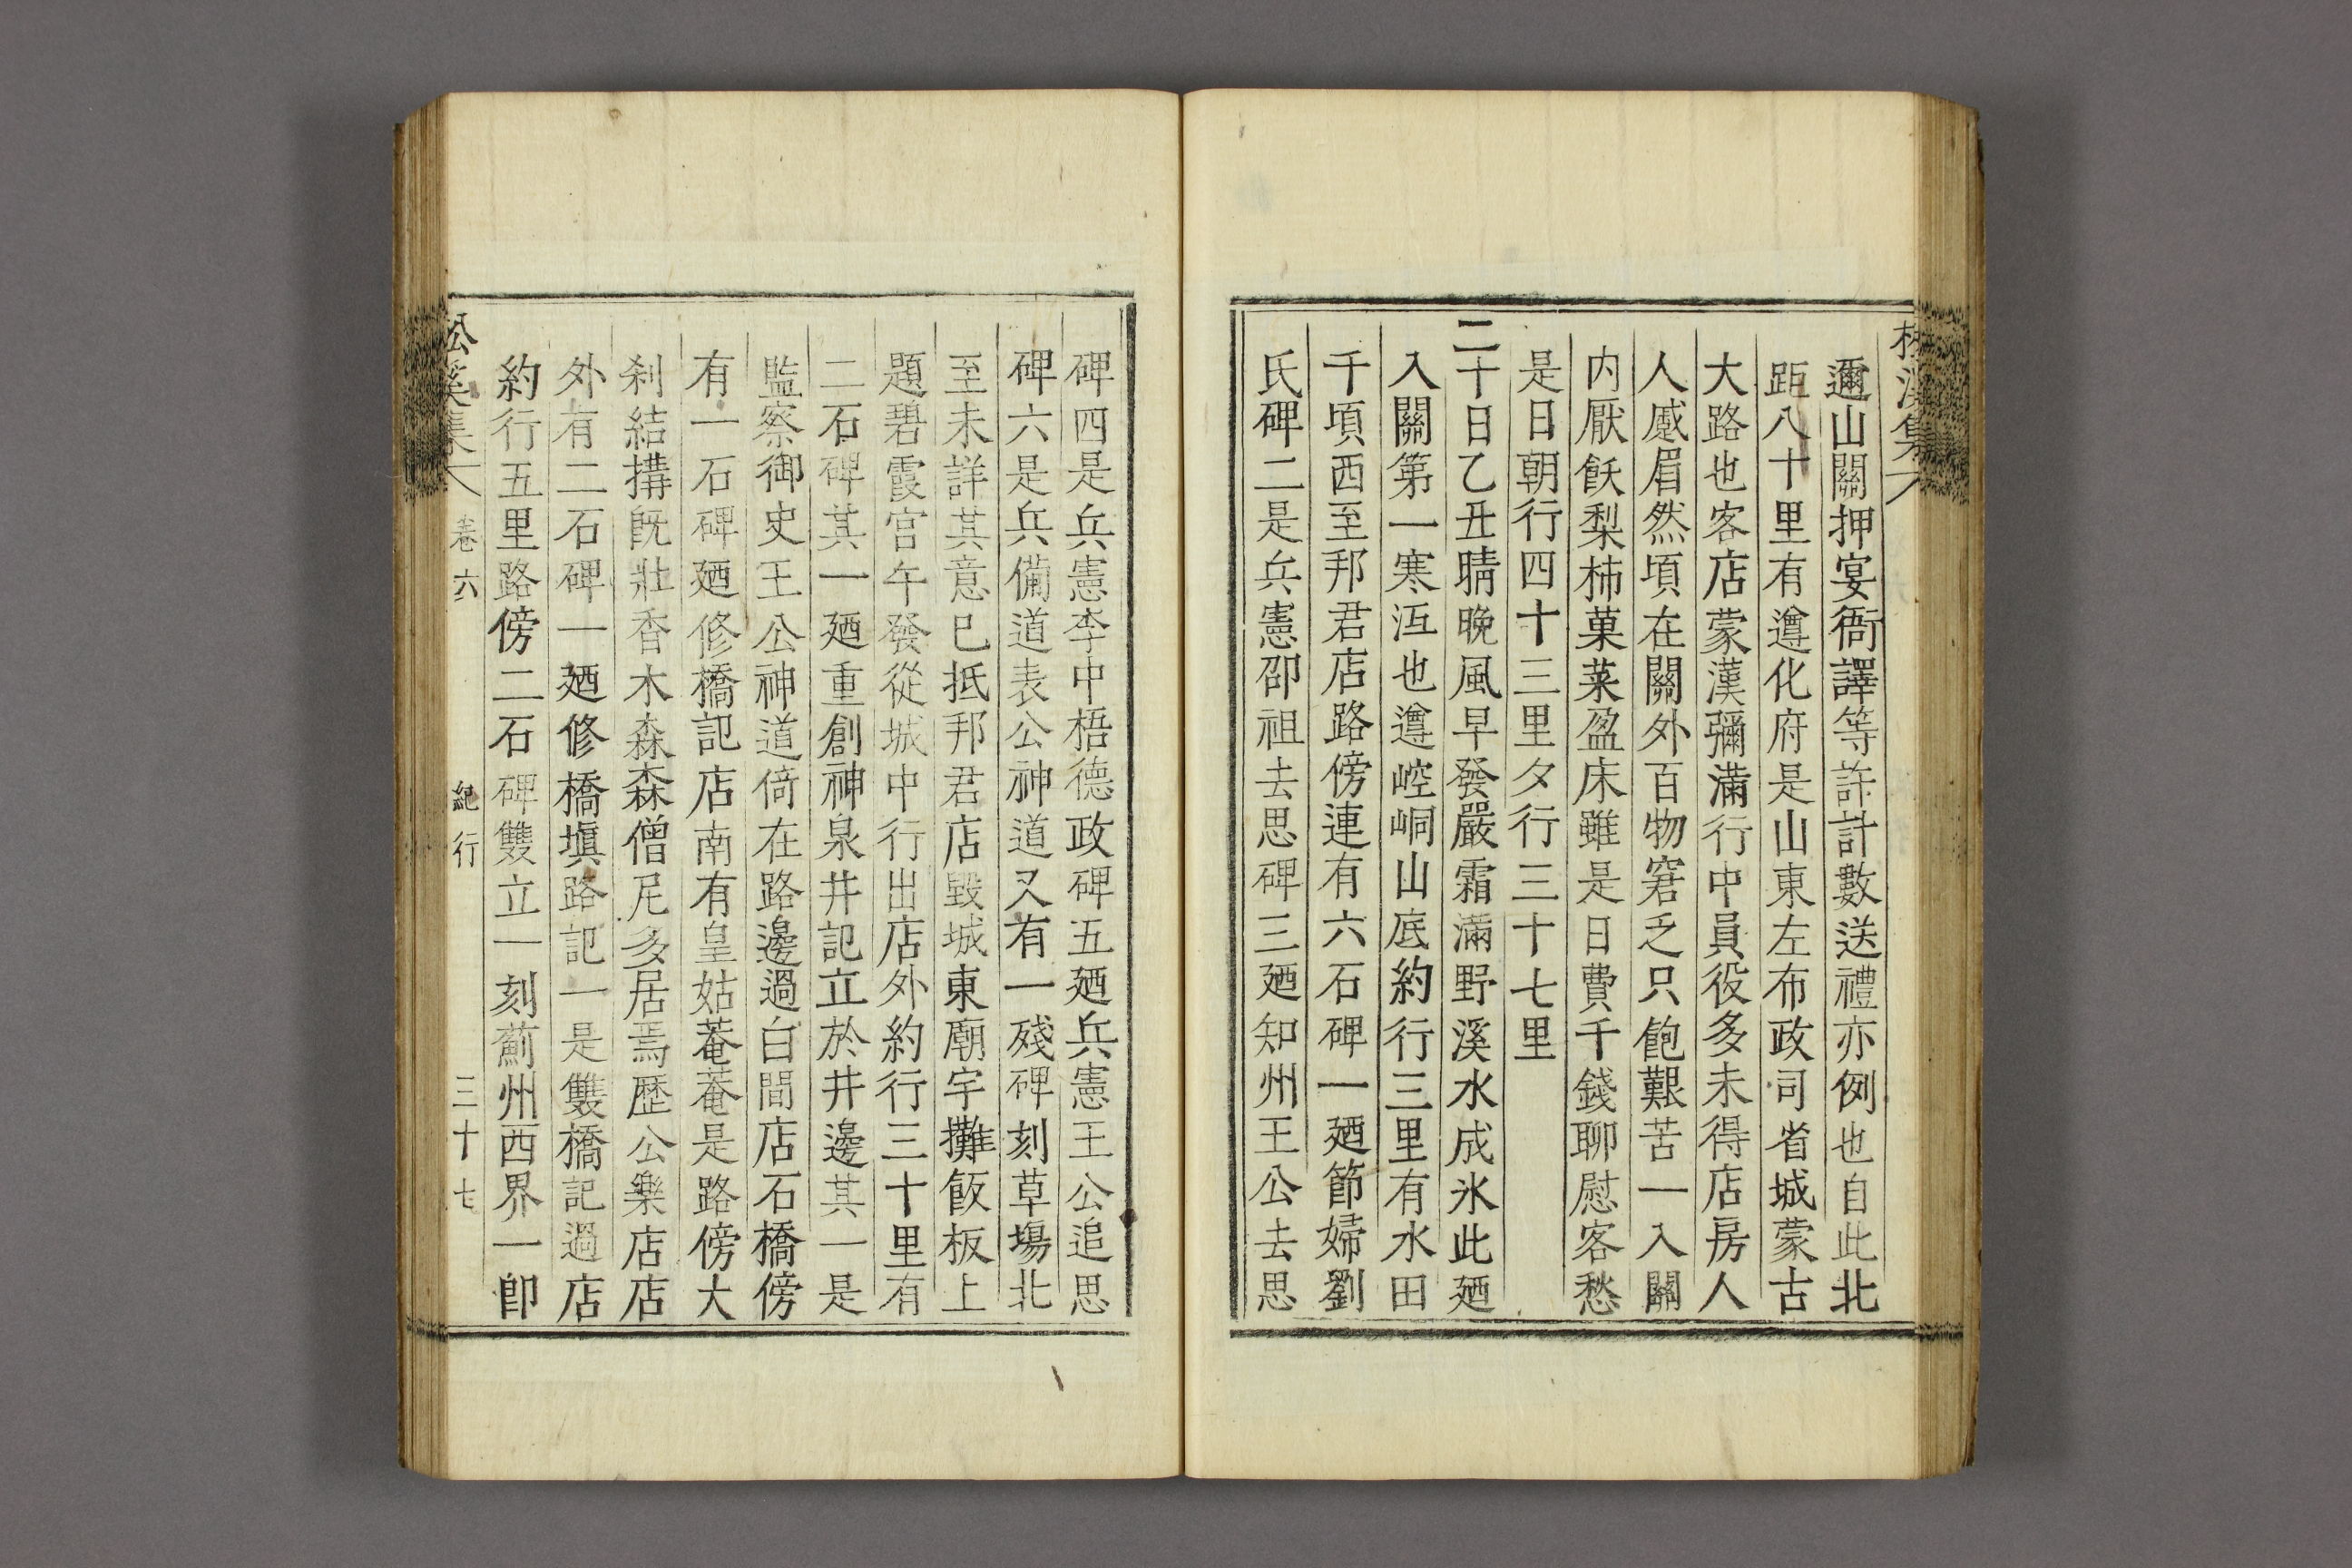 邇山關押宴衙譯等許計數送禮亦例也自此北
距八十里有遵化府是山東左布政司省城蒙古
大路也客店蒙漢彌滿行中員役多未得店房人
人慼眉然頃在關外百物窘乏只飽艱苦一入關
内厭飫梨柿菓菜盈床雖是日費千錢聊慰客愁
是日朝行四十三里夕行三十七里
二十日乙丑晴晚風早發嚴霜滿野溪水成氷此廼
入關第一寒沍也遵崆峒山底約行三里有水田
千頃西至邦君店路傍連有六石碑一廼節婦劉
氏碑二是兵憲卲祖去思碑三廼知州王公去思
碑四是兵憲李中梧德政碑五廼兵憲王公追思
碑六是兵備道表公神道又有一殘碑刻草塲北
至未詳其意已抵邦君店毀城東廟宇攤飯板上
題碧霞宮午發從城中行出店外約行三十里有
二石碑其一廼重創神泉井記立於井邊其一是
監察御史王公神道倚在路邊過白澗店石橋傍
有一石碑廼修橋記店南有皇姑菴菴是路傍大
刹結搆旣壯香木森森僧尼多居焉歷公樂店店
外有二石碑一廼修橋塡路記一是雙橋記過店
約行五里路傍二石碑雙立一刻薊州西界一卽
松溪集 卷六 紀行 三十七